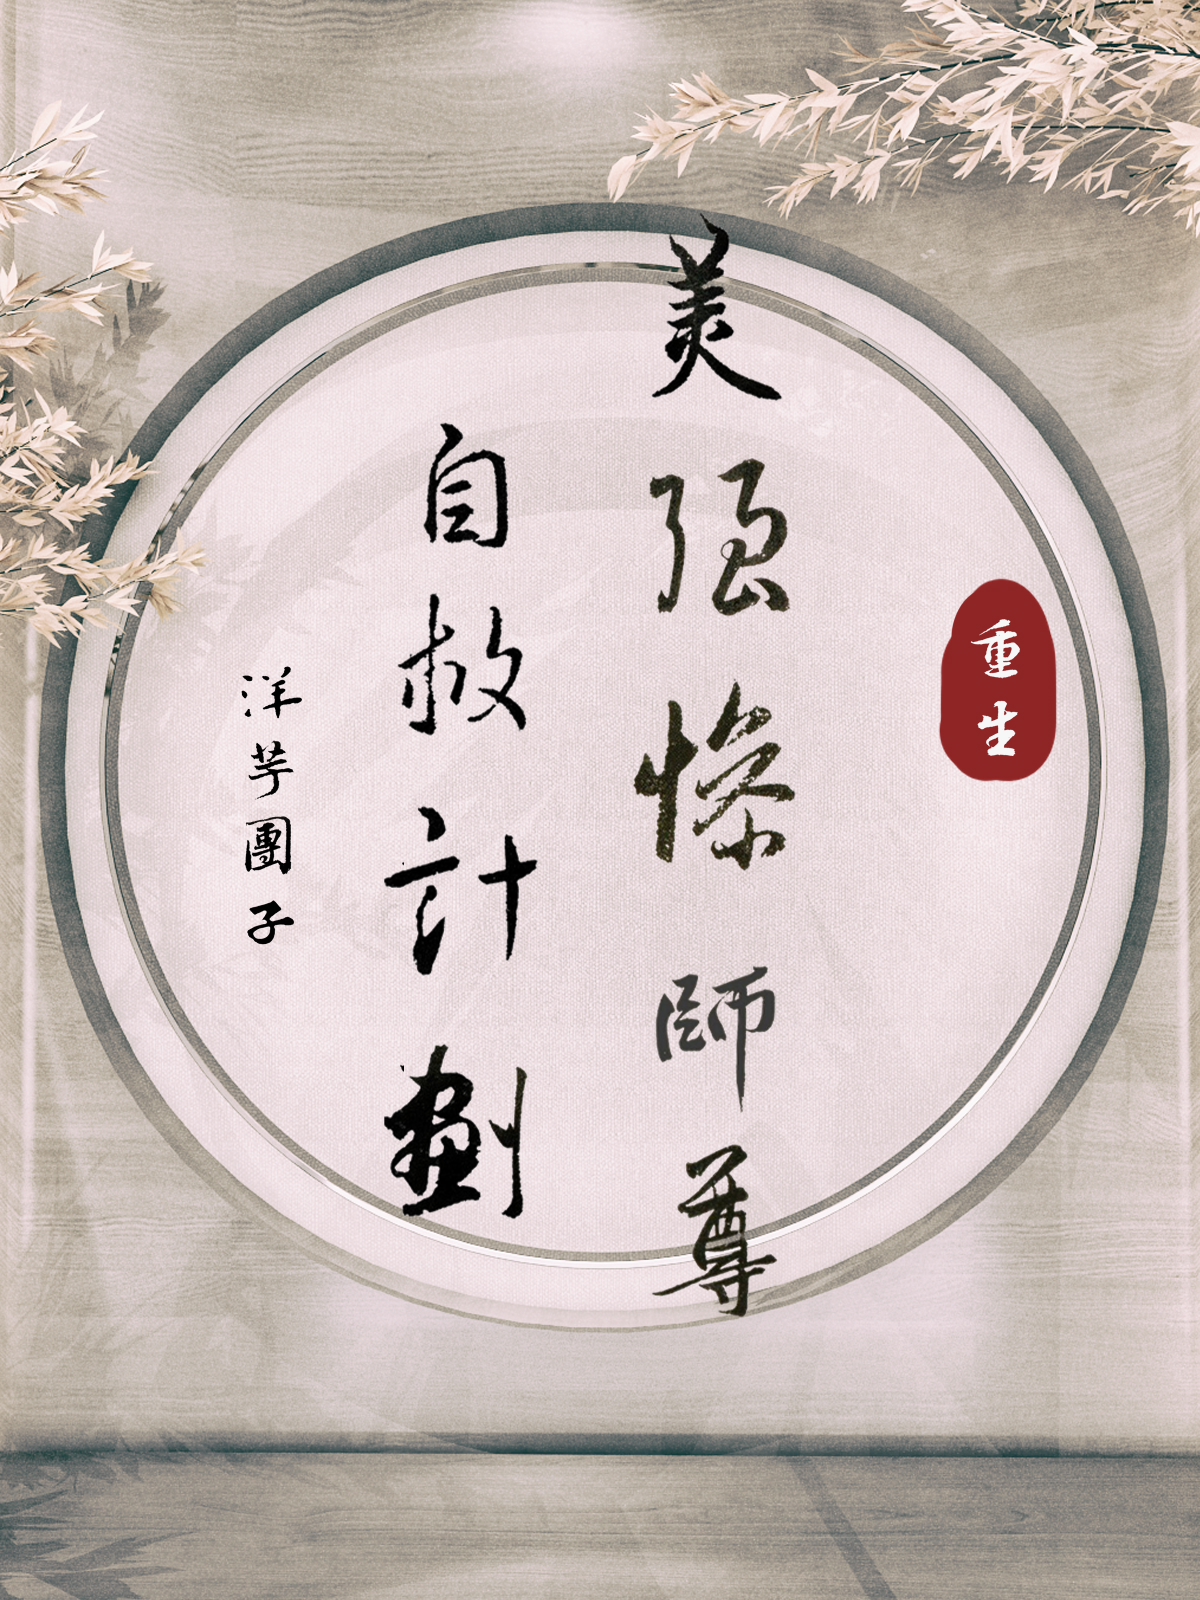 重生
美强惨師尊
自救計劃
洋芋團子